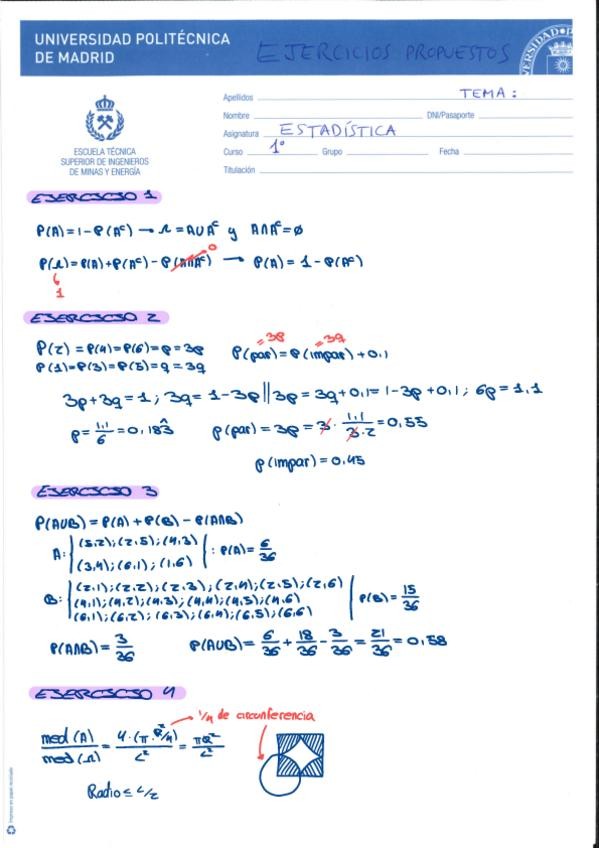 UNIVERSIDAD POLITÉCNICA
DE MADRID
EJERCICIOS PROPUESTOS
ESCUELA TÉCNICA
SUPERIOR DE INGENIEROS
DE MINAS Y ENERGÍA
Apellidos TEMA:
Nombre DNI/Pasaporte
Asignatura ESTADÍSTICA
Curso 1º Grupo Fecha
Titulación
EJERCICIO 1
P(A) = 1 - P(Aᶜ) → Ω = A∪Aᶜ y A∩Aᶜ = ∅
P(Ω) = P(A) + P(Aᶜ) - P(A∩Aᶜ) 0 → P(A) = 1 - P(Aᶜ)
1
EJERCICIO 2
= 3p = 3q
P(2) = P(4) = P(6) = p = 3p P(par) = P(impar) + 0,1
P(1) = P(3) = P(5) = q = 3q
3p + 3q = 1 ; 3q = 1 - 3p || 3p = 3q + 0,1 = 1 - 3p + 0,1 ; 6p = 1,1
p = 1,1/6 = 0,183̂ p(par) = 3p = 3 · 1,1/3·2 = 0,55
p(impar) = 0,45
EJERCICIO 3
P(A∪B) = P(A) + P(B) - P(A∩B)
A: | (5,2); (2,5); (4,3)
(3,4); (6,1); (1,6) | : P(A) = 6/36
B: | (2,1); (2,2); (2,3); (2,4); (2,5); (2,6)
(4,1); (4,2); (4,3); (4,4); (4,5); (4,6)
(6,1); (6,2); (6,3); (6,4); (6,5); (6,6) | P(B) = 15/36
P(A∩B) = 3/36 P(A∪B) = 6/36 + 18/36 - 3/36 = 21/36 = 0,58
EJERCICIO 4
1/4 de circunferencia
med(A)/med(Ω) = 4·(π·R²/4)/L² = πR²/L²
Radio ≤ L/2
Impreso en papel reciclado